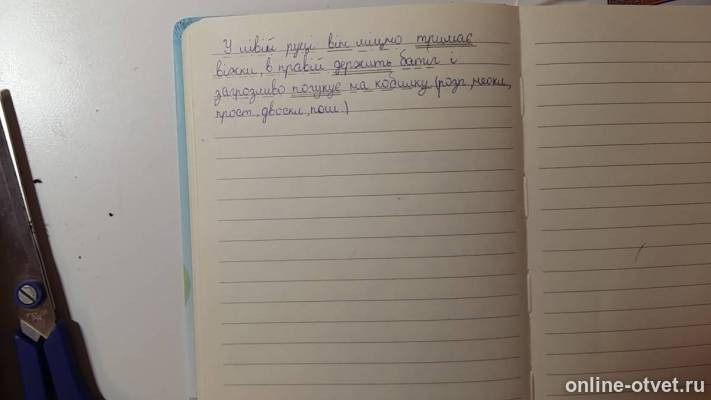 У лівій руці він міцно тримає
віжки, в правій держить батіг і
загрозливо погукує на кобилку (розп, неокл,
прост. двоскл, пош.)
online-otvet.ru